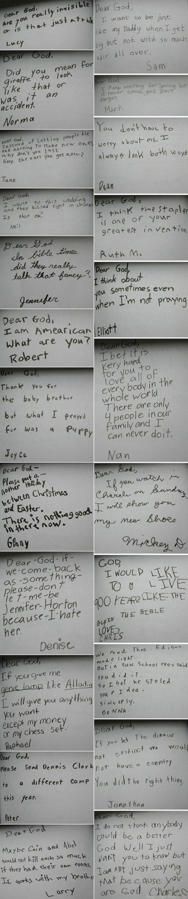 Dear God,
are you really invisible
or is that just a trick
Lucy
Dear God,
Did you mean for
giraffe to look
like that or
was it an
accident.
Norma
Dear God,
Instead of letting people die
and having to make new ones
why don't you just
keep the ones you got now?
Jane
Dear God
In bible times
did they really
talk that fancy?
Jennifer
Dear GOD,
I am American
What are you?
Robert
Dear God,
Thank you for
the baby brother
but what I prayed
for was a puppy
Joyce
Dear God-
Please put a
nother holiday
between Christmas
and Easter.
There is nothing good
in there now.
Ginny
Dear God-if-
we-come-back
as-something-
please-don't
let-me-be
Jennifer Horton
because-I-hate
her.
Denise
Dear God,
If you give me
genie lamp like Alladin
I will give you anything
you want
except my money
or my chess set.
Raphael
Dear God
Please send Dennis Clark
to a different camp
this year.
Peter
Dear God
Maybe Cain and Abel
would not kill each so much
if they had their own rooms.
It works with my brother
Larry
Dear God,
I want to be just
like my Daddy when I get
big but not with so much
hair all over.
Sam
Mark
You don't have to
worry about me I
always look both ways
Dean
Dear God,
I think the stapler
is one of your
greatest invention
Ruth M.
Dear God
I think about
you sometimes even
when I'm not praying
Elliott
Dear God,
I bet it is
very hard
for you to
love all of
every body in the
whole world
There are only
4 people in our
family and I
can never do it.
Nan
Dear God,
If you watch in
Church on Sunday
I will show you
my new shoes
Mickey D.
GOD,
I WOULD LIKE
TO LIVE
900 YEARS LIKE THE
GUY IN THE BIBLE
LOVE,
CHRIS
We read Thos. Edison
made light
But in Sun. School they said
you did it
So I bet he stoled
your idea.
Sincerely,
Donna
Dear God,
If you let the dinasor
not exstinct we would
not have a country
You did the right thing.
Jonathan
Dear God,
I do not think anybody
could be a better
God Well I just
want you to know but
I am not just saying
that because you
are God Charles